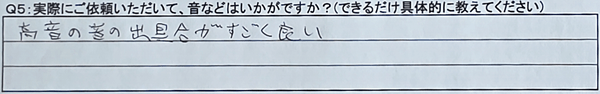 Q5:実際にご依頼いただいて、音などはいかがですか?(できるだけ具体的に教えてください)
高音の音の出具合がすごく良い